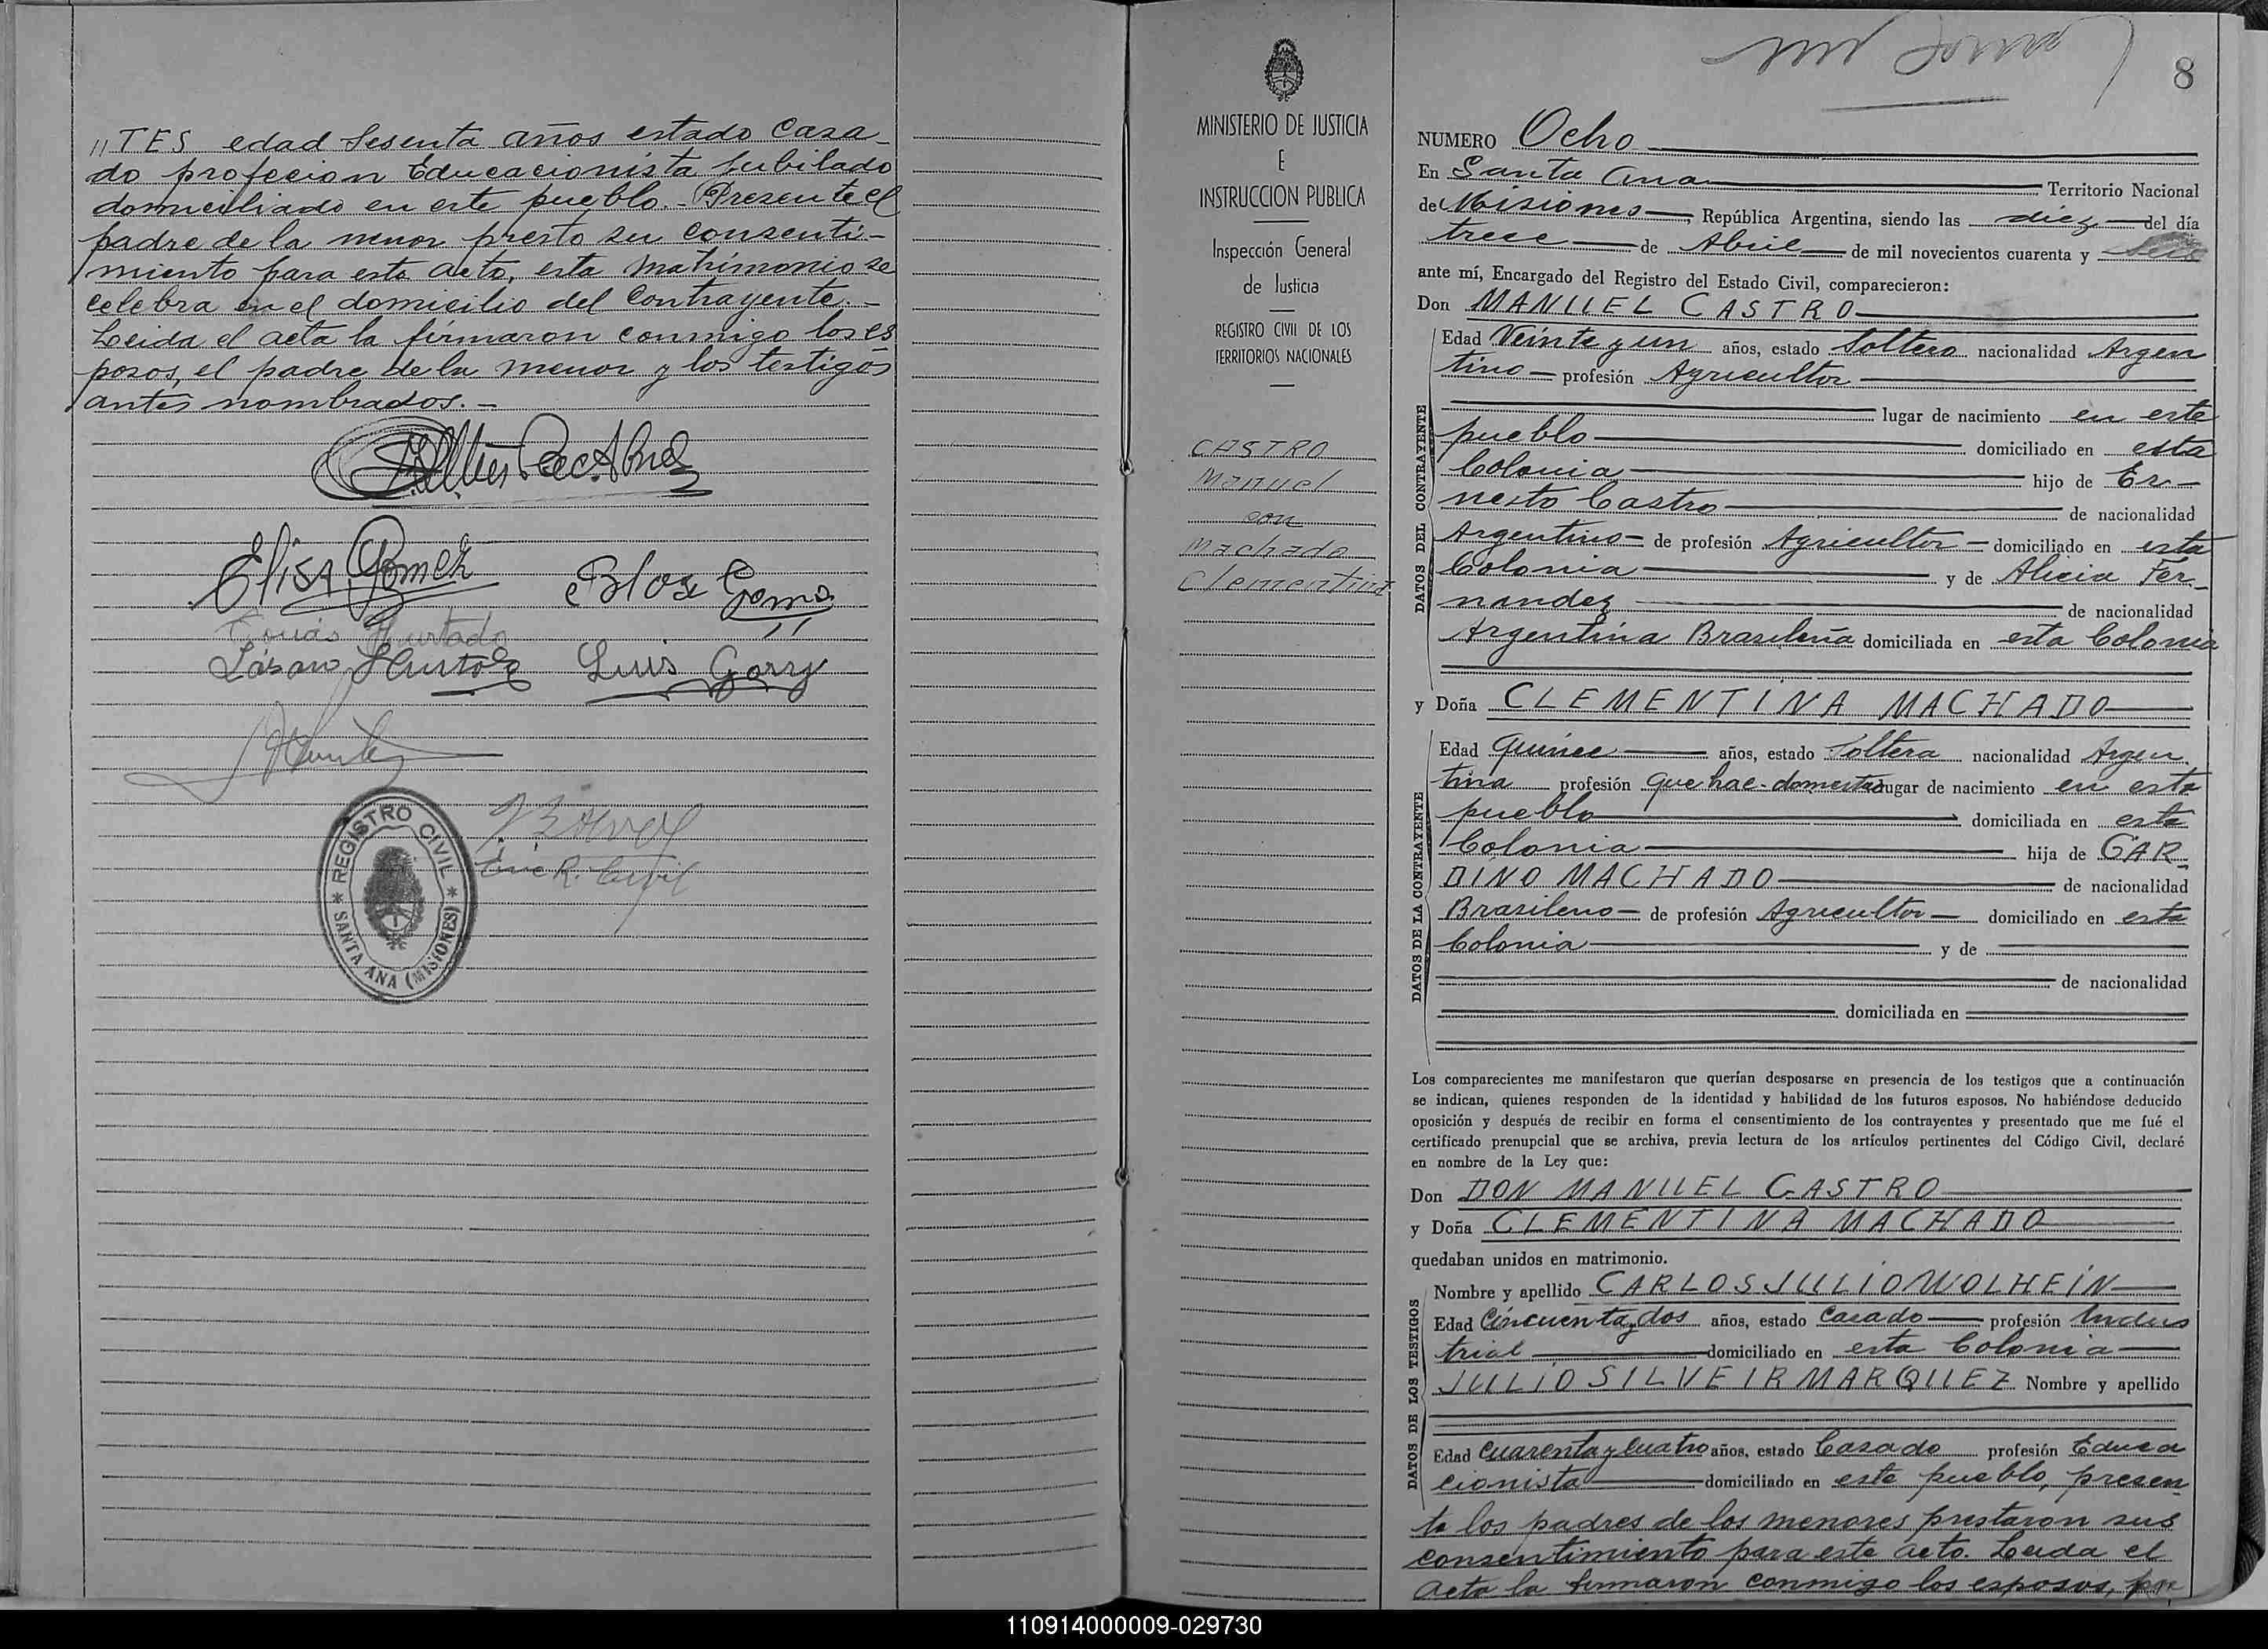 "TES edad Sesenta años estado Casa-
do profecion Educacionista Jubilado
domiciliado en este pueblo.- Presente el
padre de la menor presto su consenti-
miento para esto acto, esta Matrimonio se
celebra en el domicilio del Contrayente.-
Leida el acta la firmaron conmigo los es
posos, el padre de la menor y los testigos
antes nombrados.-
Elisa Gomez
Blas Gomez
Hurtado
Lásaro Hurtado
Luis Garay
Enc R. Civil
* REGISTRO CIVIL *
SANTA ANA (MISIONES)
MINISTERIO DE JUSTICIA
E
INSTRUCCION PUBLICA
Inspección General
de Justicia
REGISTRO CIVIL DE LOS
TERRITORIOS NACIONALES
CASTRO
Manuel
con
Machado
Clementina
8
NUMERO Ocho
En Santa Ana Territorio Nacional
de Misiones, República Argentina, siendo las diez del día
trece de Abril de mil novecientos cuarenta y seis
ante mí, Encargado del Registro del Estado Civil, comparecieron:
Don MANUEL CASTRO
DATOS DEL CONTRAYENTE
Edad Veinte y un años, estado Soltero nacionalidad Argen
tino profesión Agricultor
lugar de nacimiento en este
pueblo domiciliado en esta
Colonia hijo de Er-
nesto Castro de nacionalidad
Argentino de profesión Agricultor domiciliado en esta
Colonia y de Alicia Fer-
nandez de nacionalidad
Argentina Brasileña domiciliada en esta Colonia
y Doña CLEMENTINA MACHADO
DATOS DE LA CONTRAYENTE
Edad Quince años, estado Soltera nacionalidad Argen
tina profesión que hac-domestico lugar de nacimiento en este
pueblo domiciliada en esta
Colonia hija de GAR-
DINO MACHADO de nacionalidad
Brasileno de profesión Agricultor domiciliado en esta
Colonia y de
de nacionalidad
domiciliada en
Los comparecientes me manifestaron que querían desposarse en presencia de los testigos que a continuación
se indican, quienes responden de la identidad y habilidad de los futuros esposos. No habiéndose deducido
oposición y después de recibir en forma el consentimiento de los contrayentes y presentado que me fué el
certificado prenupcial que se archiva, previa lectura de los artículos pertinentes del Código Civil, declaré
en nombre de la Ley que:
Don DON MANUEL CASTRO
y Doña CLEMENTINA MACHADO
quedaban unidos en matrimonio.
DATOS DE LOS TESTIGOS
Nombre y apellido CARLOS JULIO WOLHEIN
Edad Cincuenta y dos años, estado Casado profesión Indus
trial domiciliado en esta Colonia
JULIO SILVEIR MARQUEZ Nombre y apellido
Edad Cuarenta y Cuatro años, estado Casado profesión Educa
cionista domiciliado en este pueblo, presen
te los padres de los menores prestaron sus
consentimiento para este acto. Leida el
acta la firmaron conmigo los esposos,
110914000009-029730